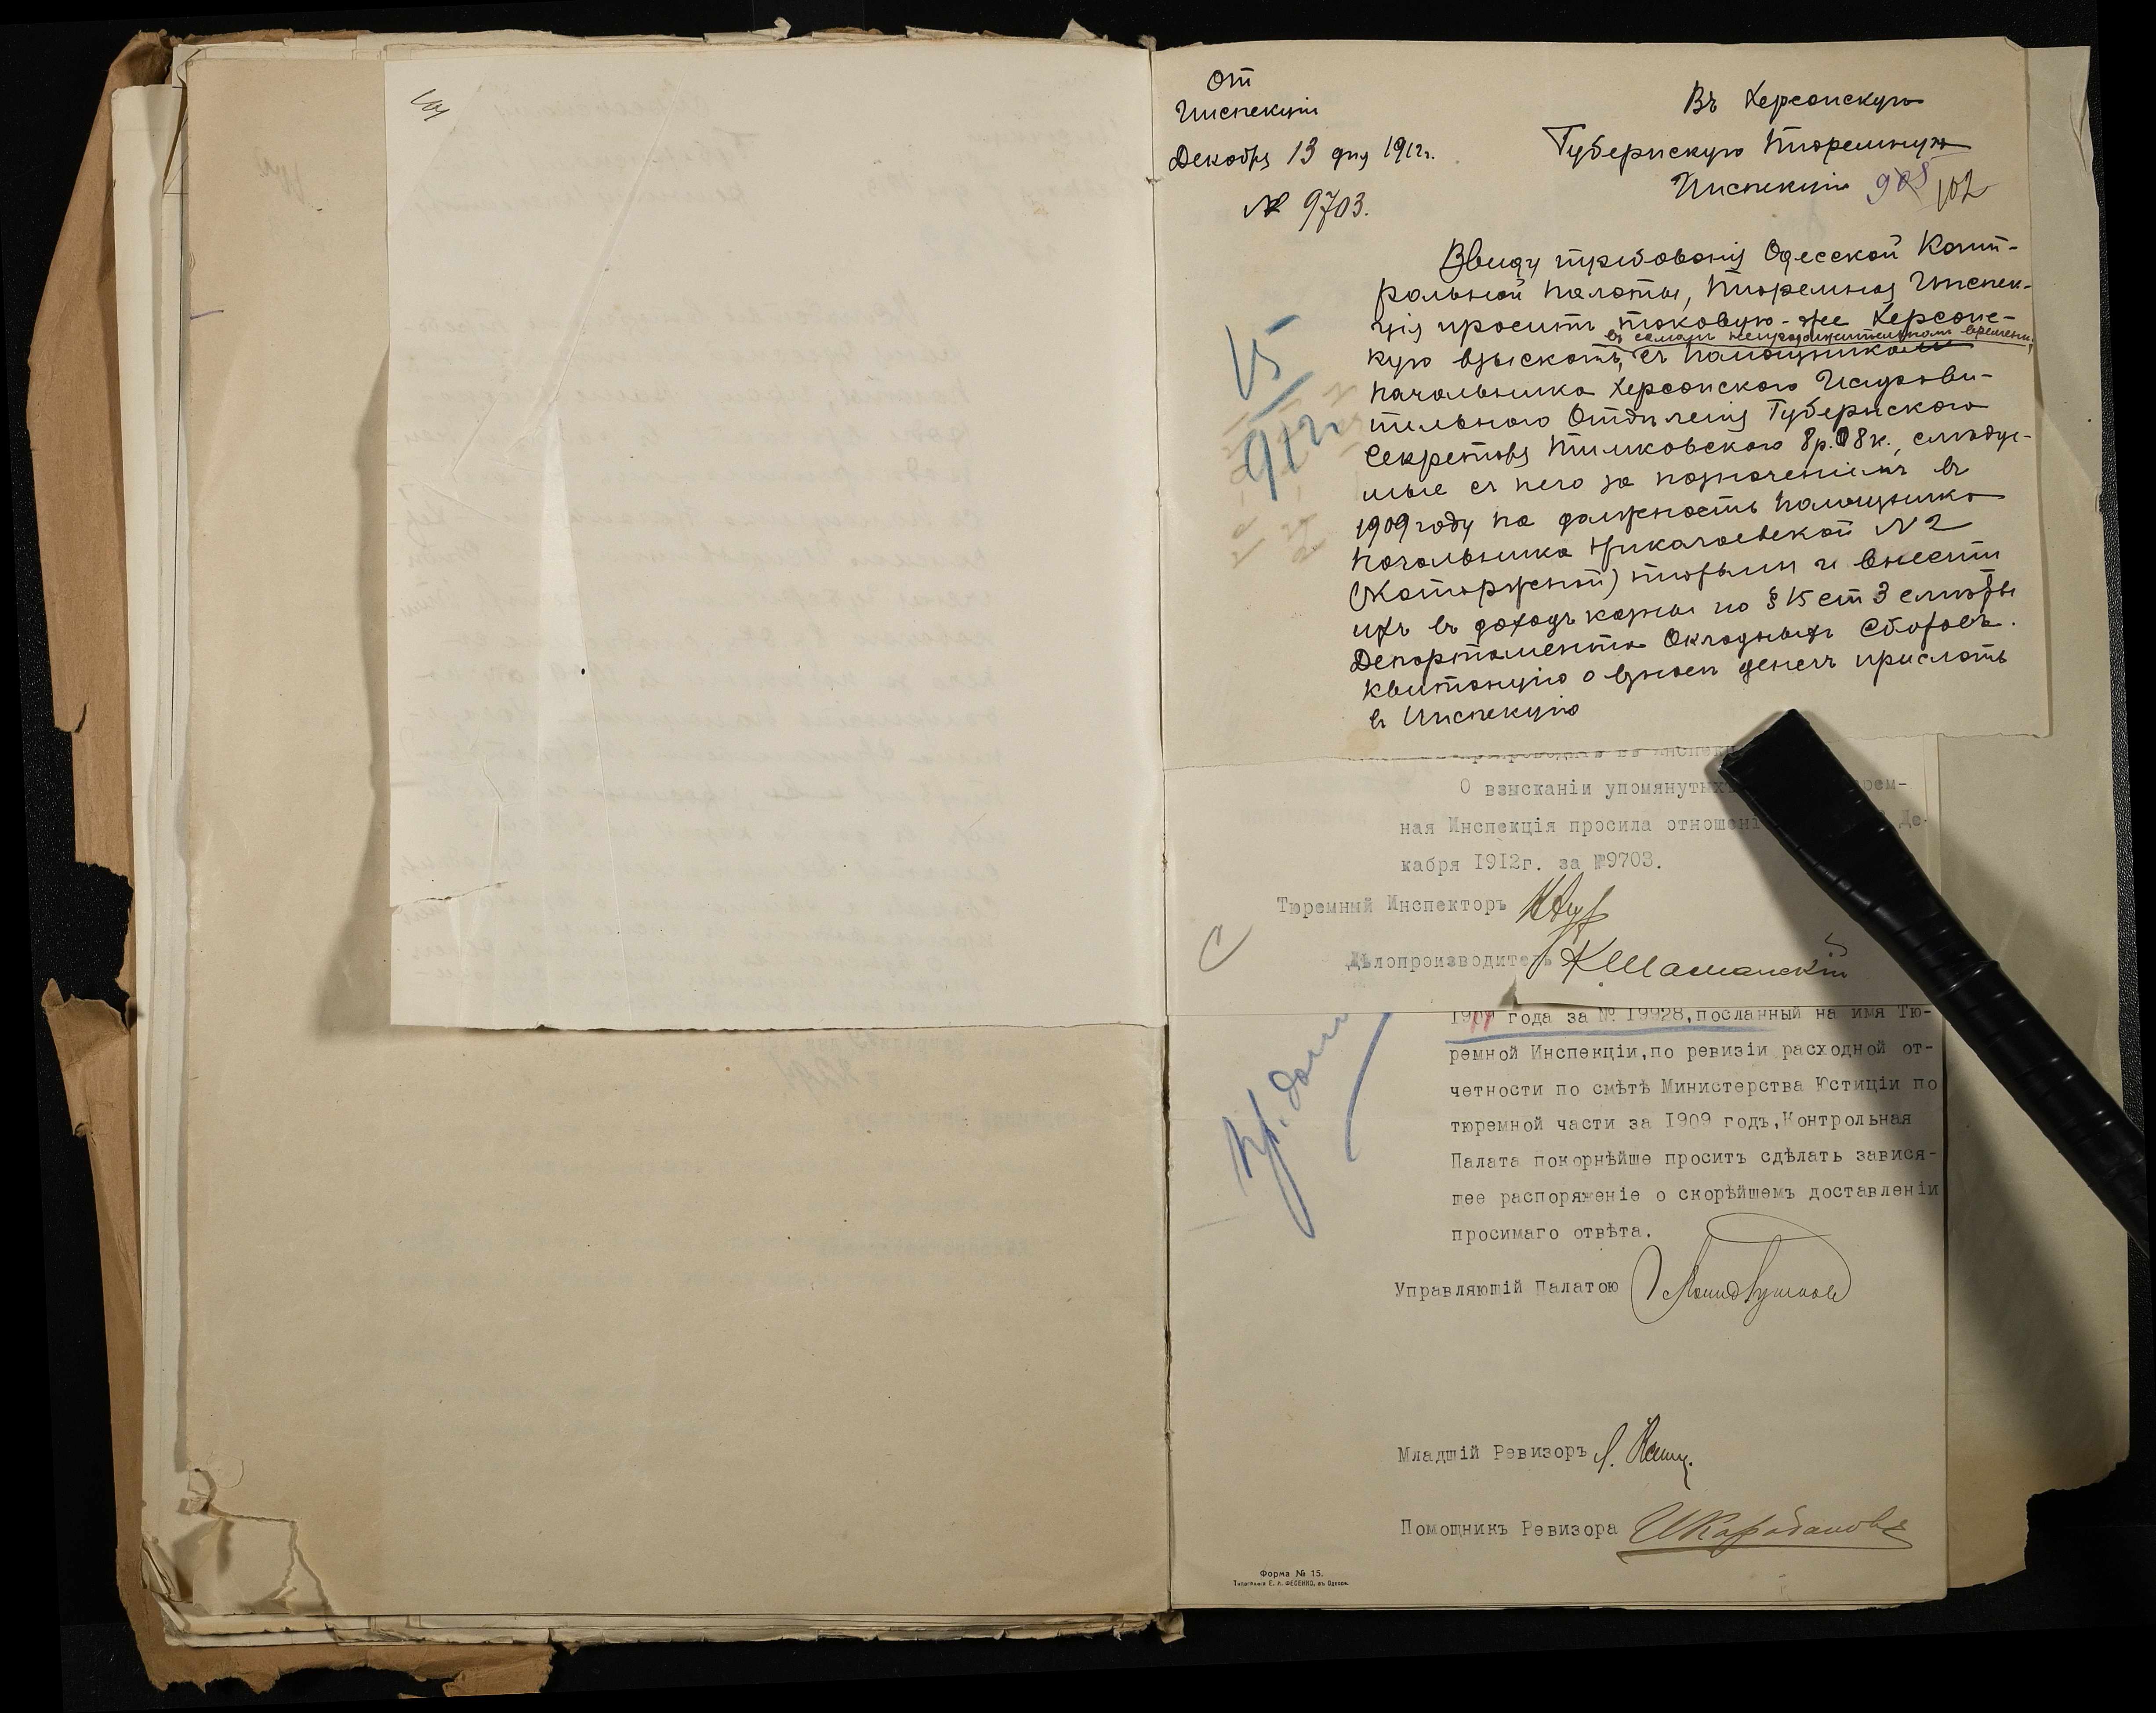 От
Инспекціи
Декабря 13 дня 1912г.
№ 9703.
Въ Херсонскую
Губернскую Тюремную
Инспекцію
102
Ввиду требованія Одесской Конт-
рольной Палаты, Тюремная Инспек-
ція проситъ таковую-же Херсонс-
кую взыскать, въ самомъ непродолжительномъ времени, съ Помощника
Начальника Херсонского Исправи-
тельного Отдѣленія Губернского
Секретаря 8р. 08к., слѣдуе-
мые съ него за назначеніемъ въ
1909 году на должность Помощника
Начальника Николаевской № 2
(Каторжной) тюрьмы и внести
ихъ въ доходъ казны по § 15 ст 3 смѣты
Департамента Окладныхъ Сборовъ.
Квитанцію о взносѣ денегъ прислать
въ Инспекцію
15
912
О взысканіи упомянутыхъ рем-
ная Инспекція просила отношені Де-
кабря 1912г. за №9703.
Тюремный Инспекторъ
С
Дѣлопроизводитель К Шаманскій
года за № 19928, посланный на имя Тю-
ремной Инспекціи, по ревизіи расходной от-
четности по смѣтѣ Министерства Юстиціи по
тюремной части за 1909 годъ, Контрольная
Палата покорнѣйше проситъ сдѣлать завися-
щее распоряженіе о скорѣйшемъ доставленіи
просимаго отвѣта.
Управляющій Палатою
Младшій Ревизоръ
Помощникъ Ревизора
Форма № 15.
Типографія Е. И. ФЕСЕНКО, въ Одессѣ.